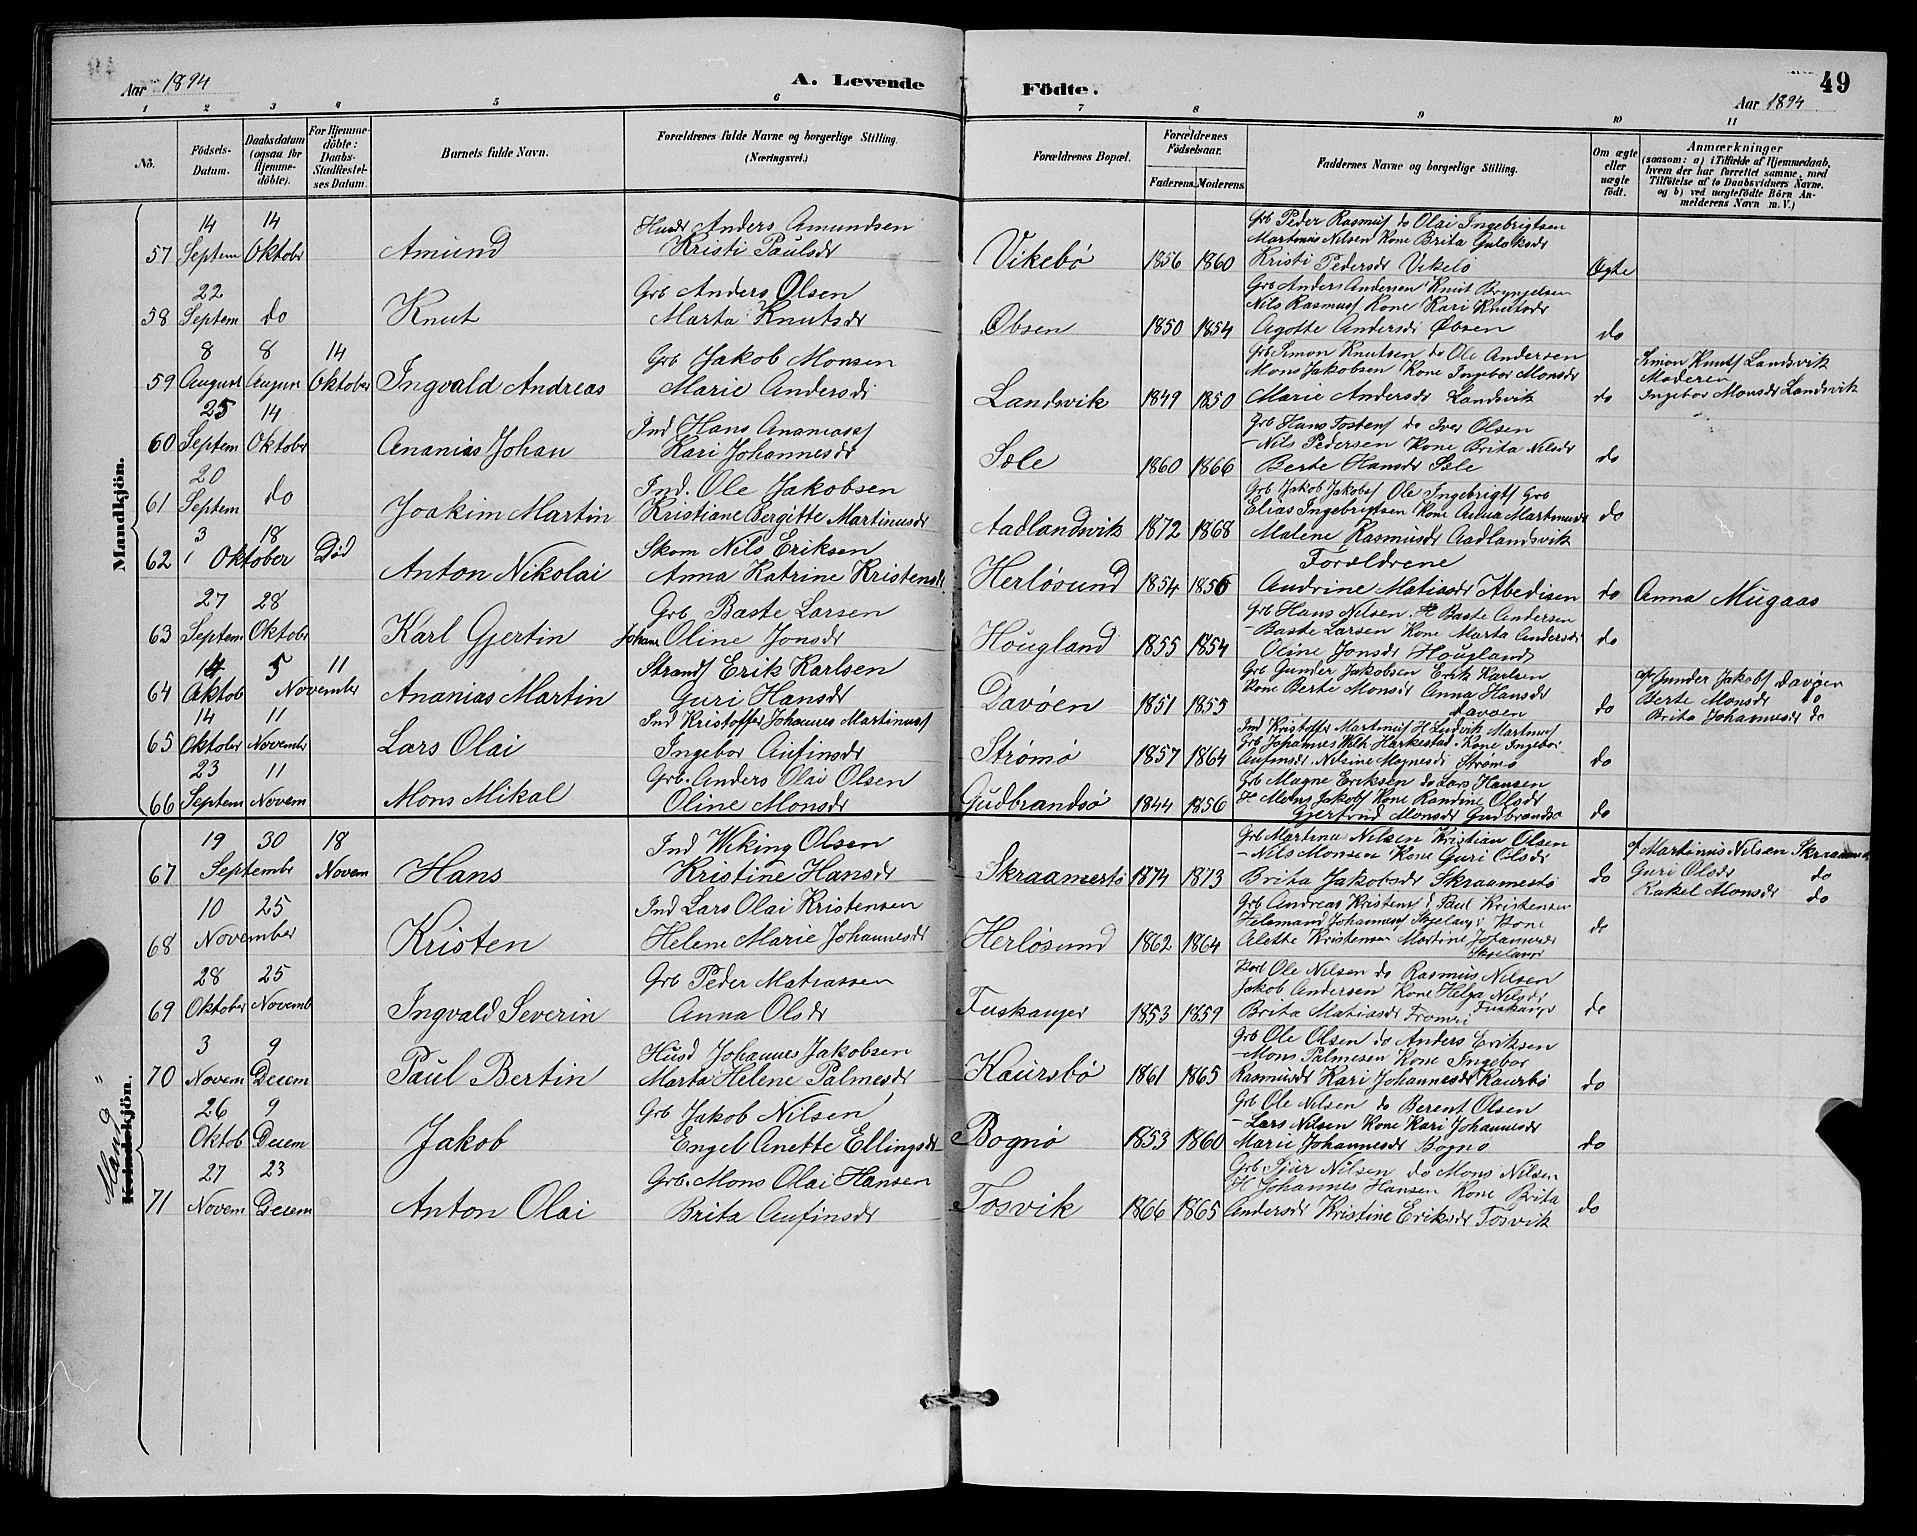 Aar 1894
A. Levende
Födte.
49
Aar 1894
1 2 3 4 5 6 7 8 9 10 11
No.
Födsels-Datum.
Daabsdatum (ogsaa for Hjemme-döbte).
For Hjemme-döbte: Daabs-Stadfæstel-ses Datum.
Barnets fulde Navn.
Forældrenes fulde Navne og borgerlige Stilling. (Næringsvei.)
Forældrenes Bopæl.
Forældrenes Födselsaar.
Faderens. Moderens.
Faddernes Navne og borgerlige Stilling.
Om ægte eller uægte födt.
Anmærkninger
(saasom: a) i Tilfælde af Hjemmedaab,
hvem der har forrettet samme, med
Tilföielse af to Daabsvidners Navne,
og b) ved uægtefödte Börn An-
melderens Navn m. V.)
Mandkjön.
57 14 Septem 14 Oktober Amund
Husd Anders Amundsen
Kristi Paulsdr
Vikebø 1856 1860
Grb Peder Rasmuss do Olai Ingebrigtsen
Martinus Nilsen Kone Brita
Kristi Pedersdr Vikebø
Ægte
58 22 Septem do Knut
Grb Anders Olsen
Marta Knutsdr
Øbsen 1850 1854
Grb Anders Andersen Knut Bryngelsen
Nils Rasmuss Kone Kari Knutsdr
Agotte Andersdr Øbsen
do
59 8 August 8 August 14 Oktober Ingvald Andreas
Grb Jakob Monsen
Marie Andersdr
Landsvik 1849 1850
Grb Simon Knutsen do Ole Andersen
Mons Jakobsen Kone Ingebor Monsdr
Marie Andersdr Landsvik
do
Simon Knuts Landsvik
Moderen
Ingebor Monsdr Landsvik
60 25 Septem 14 Oktober Ananias Johan
Ind Hans Ananiass
Kari Johannesdr
Sæle 1860 1866
Grb Hans Tostens do Iver Olsen
- Nils Pedersen Kone Brita Nilsdr
Berte Hansdr Sæle
do
61 20 Septem do Joakim Martin
Ind. Ole Jakobsen
Kristiane Bergitte Martinusdr
Aadlandsvik 1872 1868
Grb Jakob Jakobs Ole Ingebrigts Grb
Elias Ingebrigtsen Kone Anna Martinusdr
Malene Rasmusdr Aadlandsvik
do
62 3 18 Oktober Død Anton Nikolai
Skom Nils Eriksen
Anna Katrine Kristensdr.
Herløsund 1854 1856
Forældrene
Andrine Matiasdr Abedisen
do
Anna Mugaas
63 27 Septem 28 Oktober Karl Gjertin
Grb Baste Larsen
Johane Oline Jonsdr
Hougland 1855 1854
Grb Hans Nilsen. H Baste Andersen
- Baste Larsen Kone Marta Andersdr
Oline Jonsdr Hougland
do
64 14 Oktob 5 11 November Ananias Martin
Strands Erik Karlsen
Guri Hansdr
Davøen 1851 1855
Grb Gunder Jakobsen Erik Karlsen
Kone Berte Monsdr Anna Hansdr
Davøen
do
af Gunder Jakobs Davøen
Berte Monsdr do
Brita Johannesdr do
65 14 Oktober 11 Novembr Lars Olai
Ind Kristoffer Johannes Martinuss
Ingebor Anfinsdr
Strømø 1857 1864
Ind Kristoffer Martinus H Ludvik Martinus
Grb Johannes Harkestad. Kone Ingebor
Anfinsdr. Nilsine Magnesdr Strømø
do
66 23 Septem 11 Novem Mons Mikal
Grb. Anders Olai Olsen
Oline Monsdr
Gudbrandsø 1844 1856
Grb Magne Eriksen do Lars Hansen
Mons Jakobs Kone Randine Olsdr
Gjertrud Monsdr Gudbrandsø
do
Mand Kvindekjön.
67 19 30 Septembr 18 Novem Hans
Ind Wiking Olsen
Kristine Hansdr
Skraamestø 1874 1873
Grb Martinus Nilsen Kristian Olsen
- Nils Monsen Kone Guri Olsdr
Brita Jakobsdr Skraamestø
do
af Martinus Nilsen Skraamestø
Guri Olsdr do
Rakel Monsdr do
68 10 25 November Kristen
Ind Lars Olai Kristensen
Helene Marie Johannesdr
Herløsund 1862 1864
Grb Andreas Kristens Paul Kristensen
Johannes Kone
Alette Kristensen Martine Johannesdr
do
69 28 Oktober 25 Novemb Ingvald Severin
Grb Peder Matiassen
Anna Olsdr
Fuskanger 1853 1859
Ole Nilsen do Rasmus Nilsen
Jakob Andersen Kone Helga Nilsdr
Brita Matiasdr Fromri Fuskanger
do
70 3 Novem 9 Decem Paul Bertin
Husd Johannes Jakobsen
Marta Helene Palmesdr
Kaursbø 1861 1865
Grb Ole Olsen do Anders Eriksen
- Mons Palmesen Kone Ingebor
Rasmusdr Kari Johannesdr Kaursbø
do
26 Oktob 9 Decem Jakob
Grb Jakob Nilsen
Engel Anette Ellingsdr
Bognø 1853 1860
Grb Ole Nilsen do Berent Olsen
- Lars Nilsen Kone Kari Johannesdr
Marie Johannesdr Bognø
do
71 27 Novem 23 Decem Anton Olai
Grb. Mons Olai Hansen
Brita Anfinsdr
Tosvik 1866 1865
Grb Sjur Nilsen do Mons Nilsen
H Johannes Hansen Kone Brita
Andersdr Kristine Eriksdr Tosvik
do